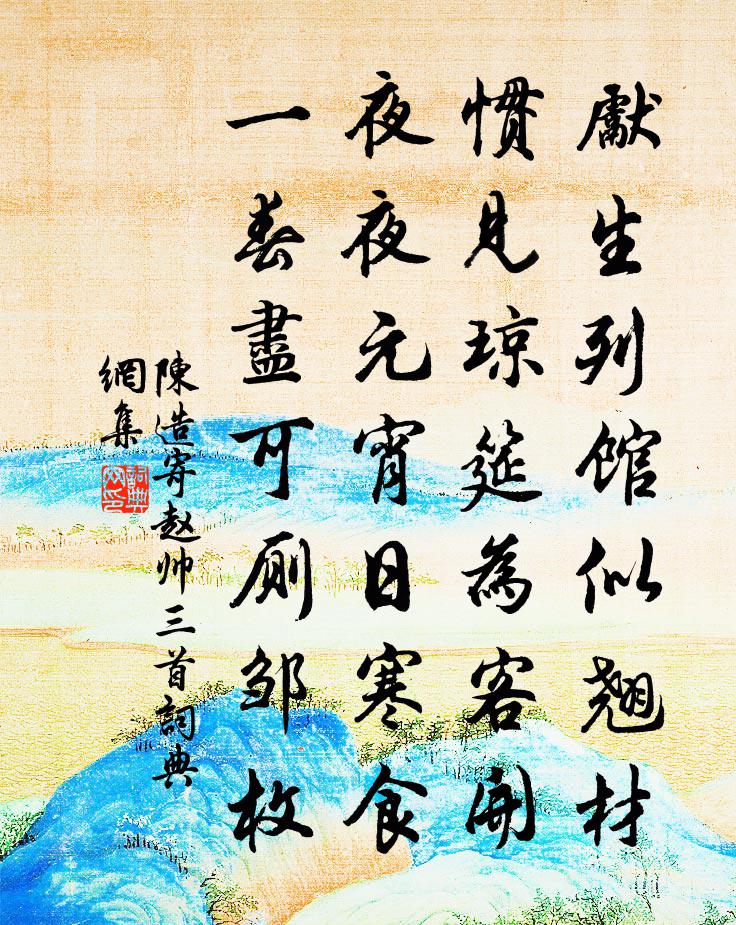 獻生列館似翘材
慣見琼筵為客開
夜夜元宵日寒食
一春盡可厕邹枚
陳造寄赵帅三首詞典
網集